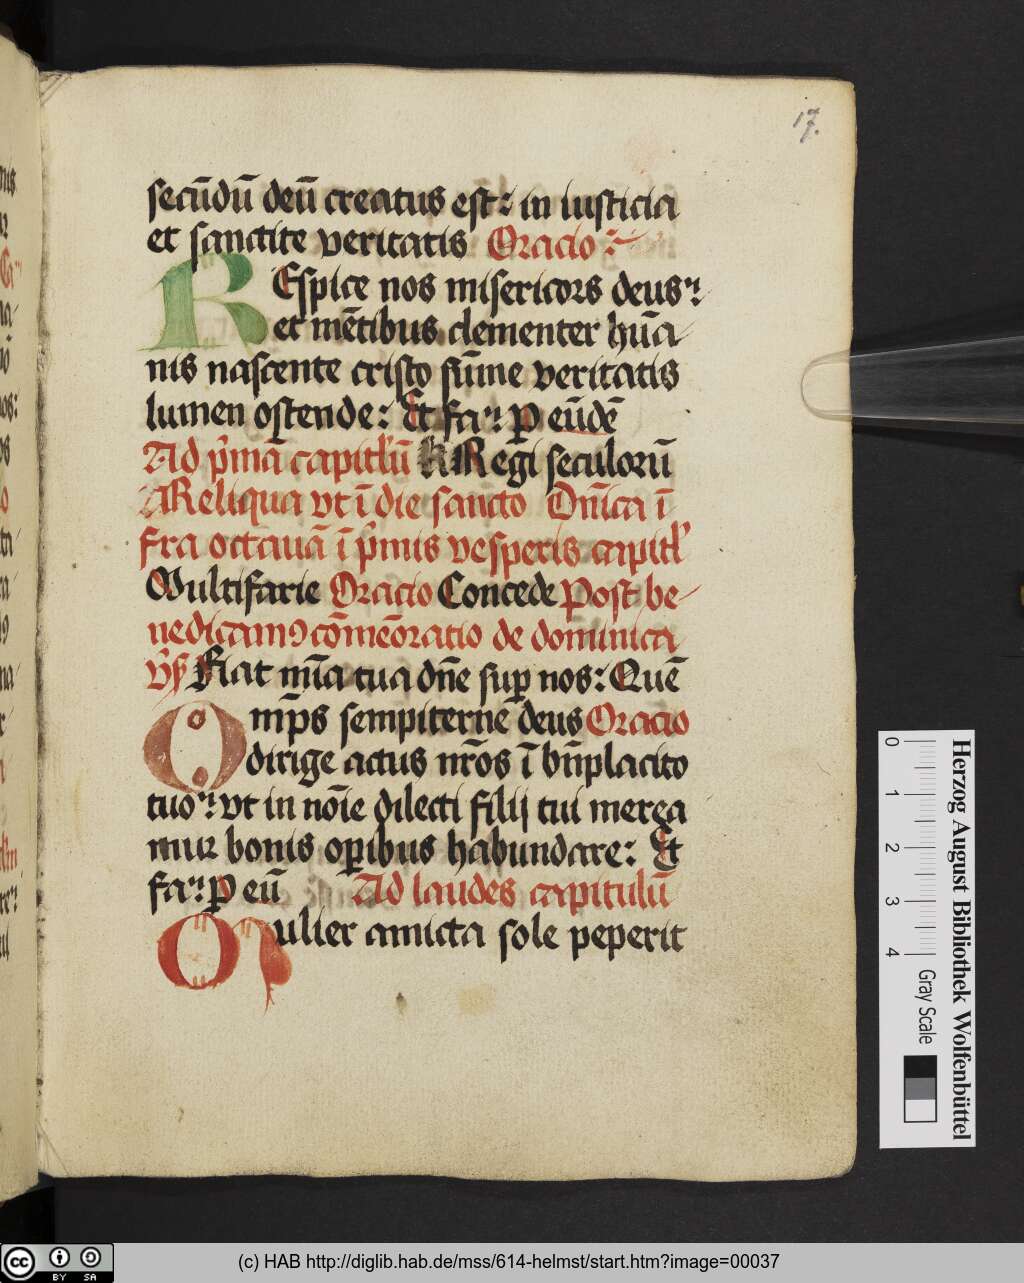 17.
secūdū deū creatus est: in iusticia
et sanctite veritatis Oracio
REspice nos misericors deus
et mētibus clementer hūa
nis nascente cristo sūme veritatis
lumen ostende: Et fa: p eūdē
Ad pmā capitlū Regi seculorū
Reliqua vt ī die sancto Dnica ī
fra octauā ī pmis vesperis capitl
Multifarie Oracio Concede Post be
nedicamꝰ cōmeōratio de dominica
Fiat mia tua dne sup nos: Quē
Omps sempiterne deus Oracio
dirige actus nros ī bnplacito
tuo: vt in noīe dilecti filij tui merea
mur bonis opibus habundare: Et
fa: p eū Ad laudes capitulū
Mulier amicta sole peperit
0 1 2 3 4
Gray Scale
Herzog August Bibliothek Wolfenbüttel
cc BY SA
(c) HAB http://diglib.hab.de/mss/614-helmst/start.htm?image=00037